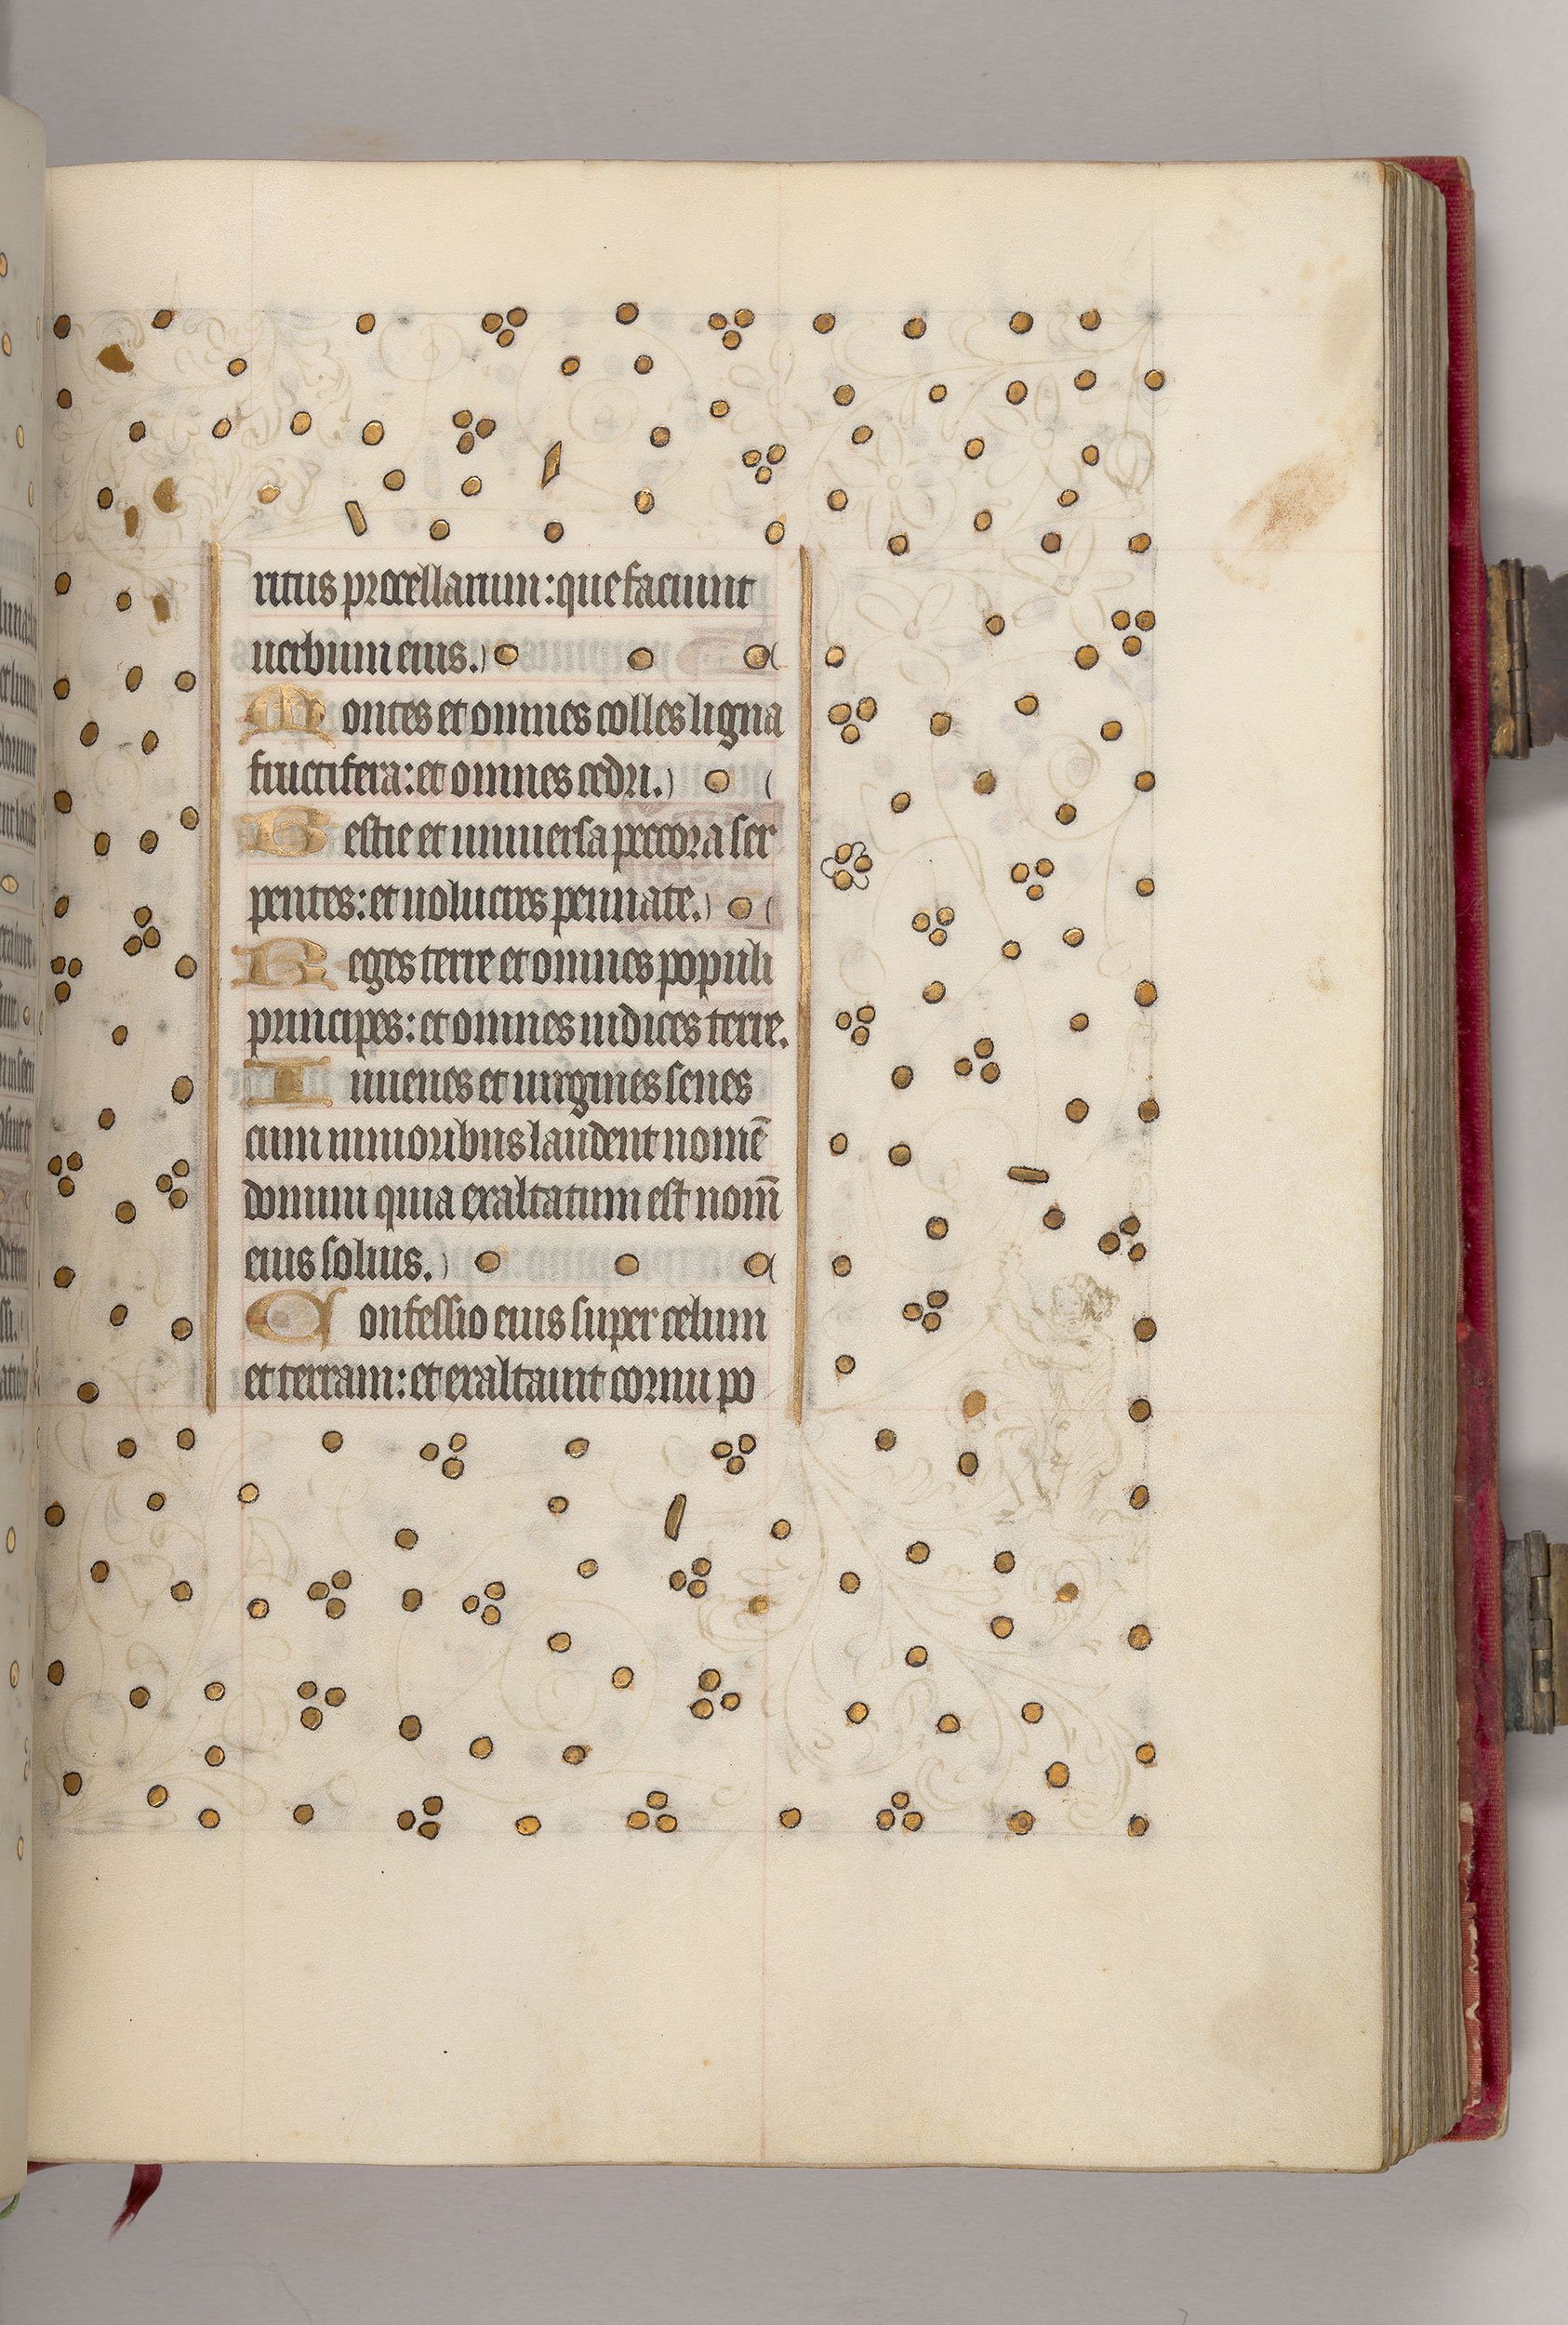 ritus procellarum: que faciunt
uerbum eius.
Montes et omnes colles ligna
fructifera: et omnes cedri.
Bestie et uniuersa peccora ser
pentes: et uolucres pennate.
Reges terre et omnes populi
principes: et omnes iudices terre.
Iuuenes et uirgines senes
cum iunioribus laudent nomē
domini quia exaltatum est nom̄
eius solius.
Confessio eius super celum
et terram: et exaltauit cornu po